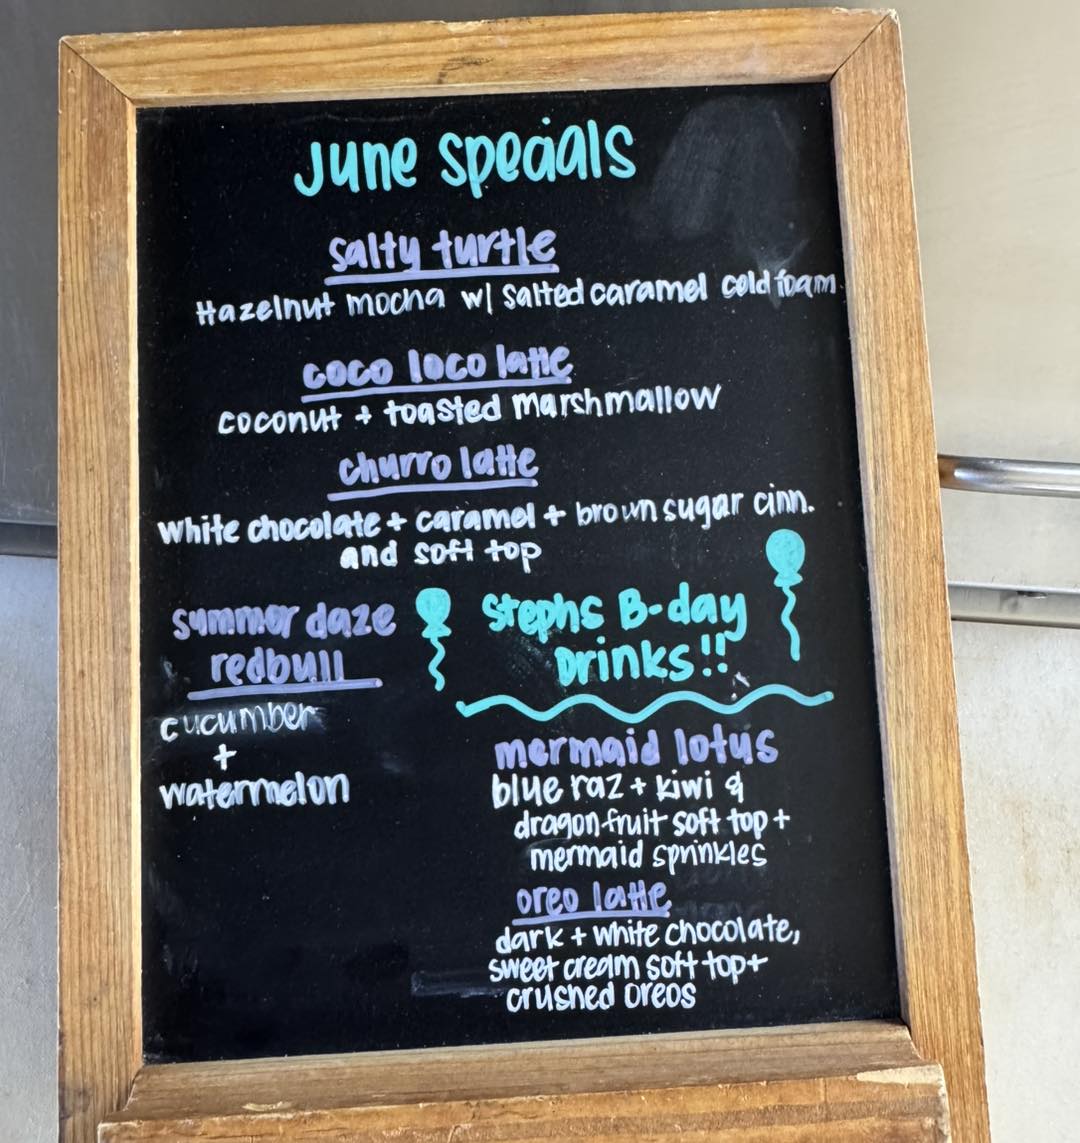 June specials
salty turtle
Hazelnut mocha w/ salted caramel cold foam
coco loco latte
coconut + toasted marshmallow
churro latte
white chocolate + caramel + brown sugar cinn.
and soft top
summer daze
redbull
cucumber
+
watermelon
Stephs B-day
Drinks!!
mermaid lotus
blue raz + kiwi &
dragonfruit soft top +
mermaid sprinkles
oreo latte
dark + white chocolate,
sweet cream soft top +
crushed oreos